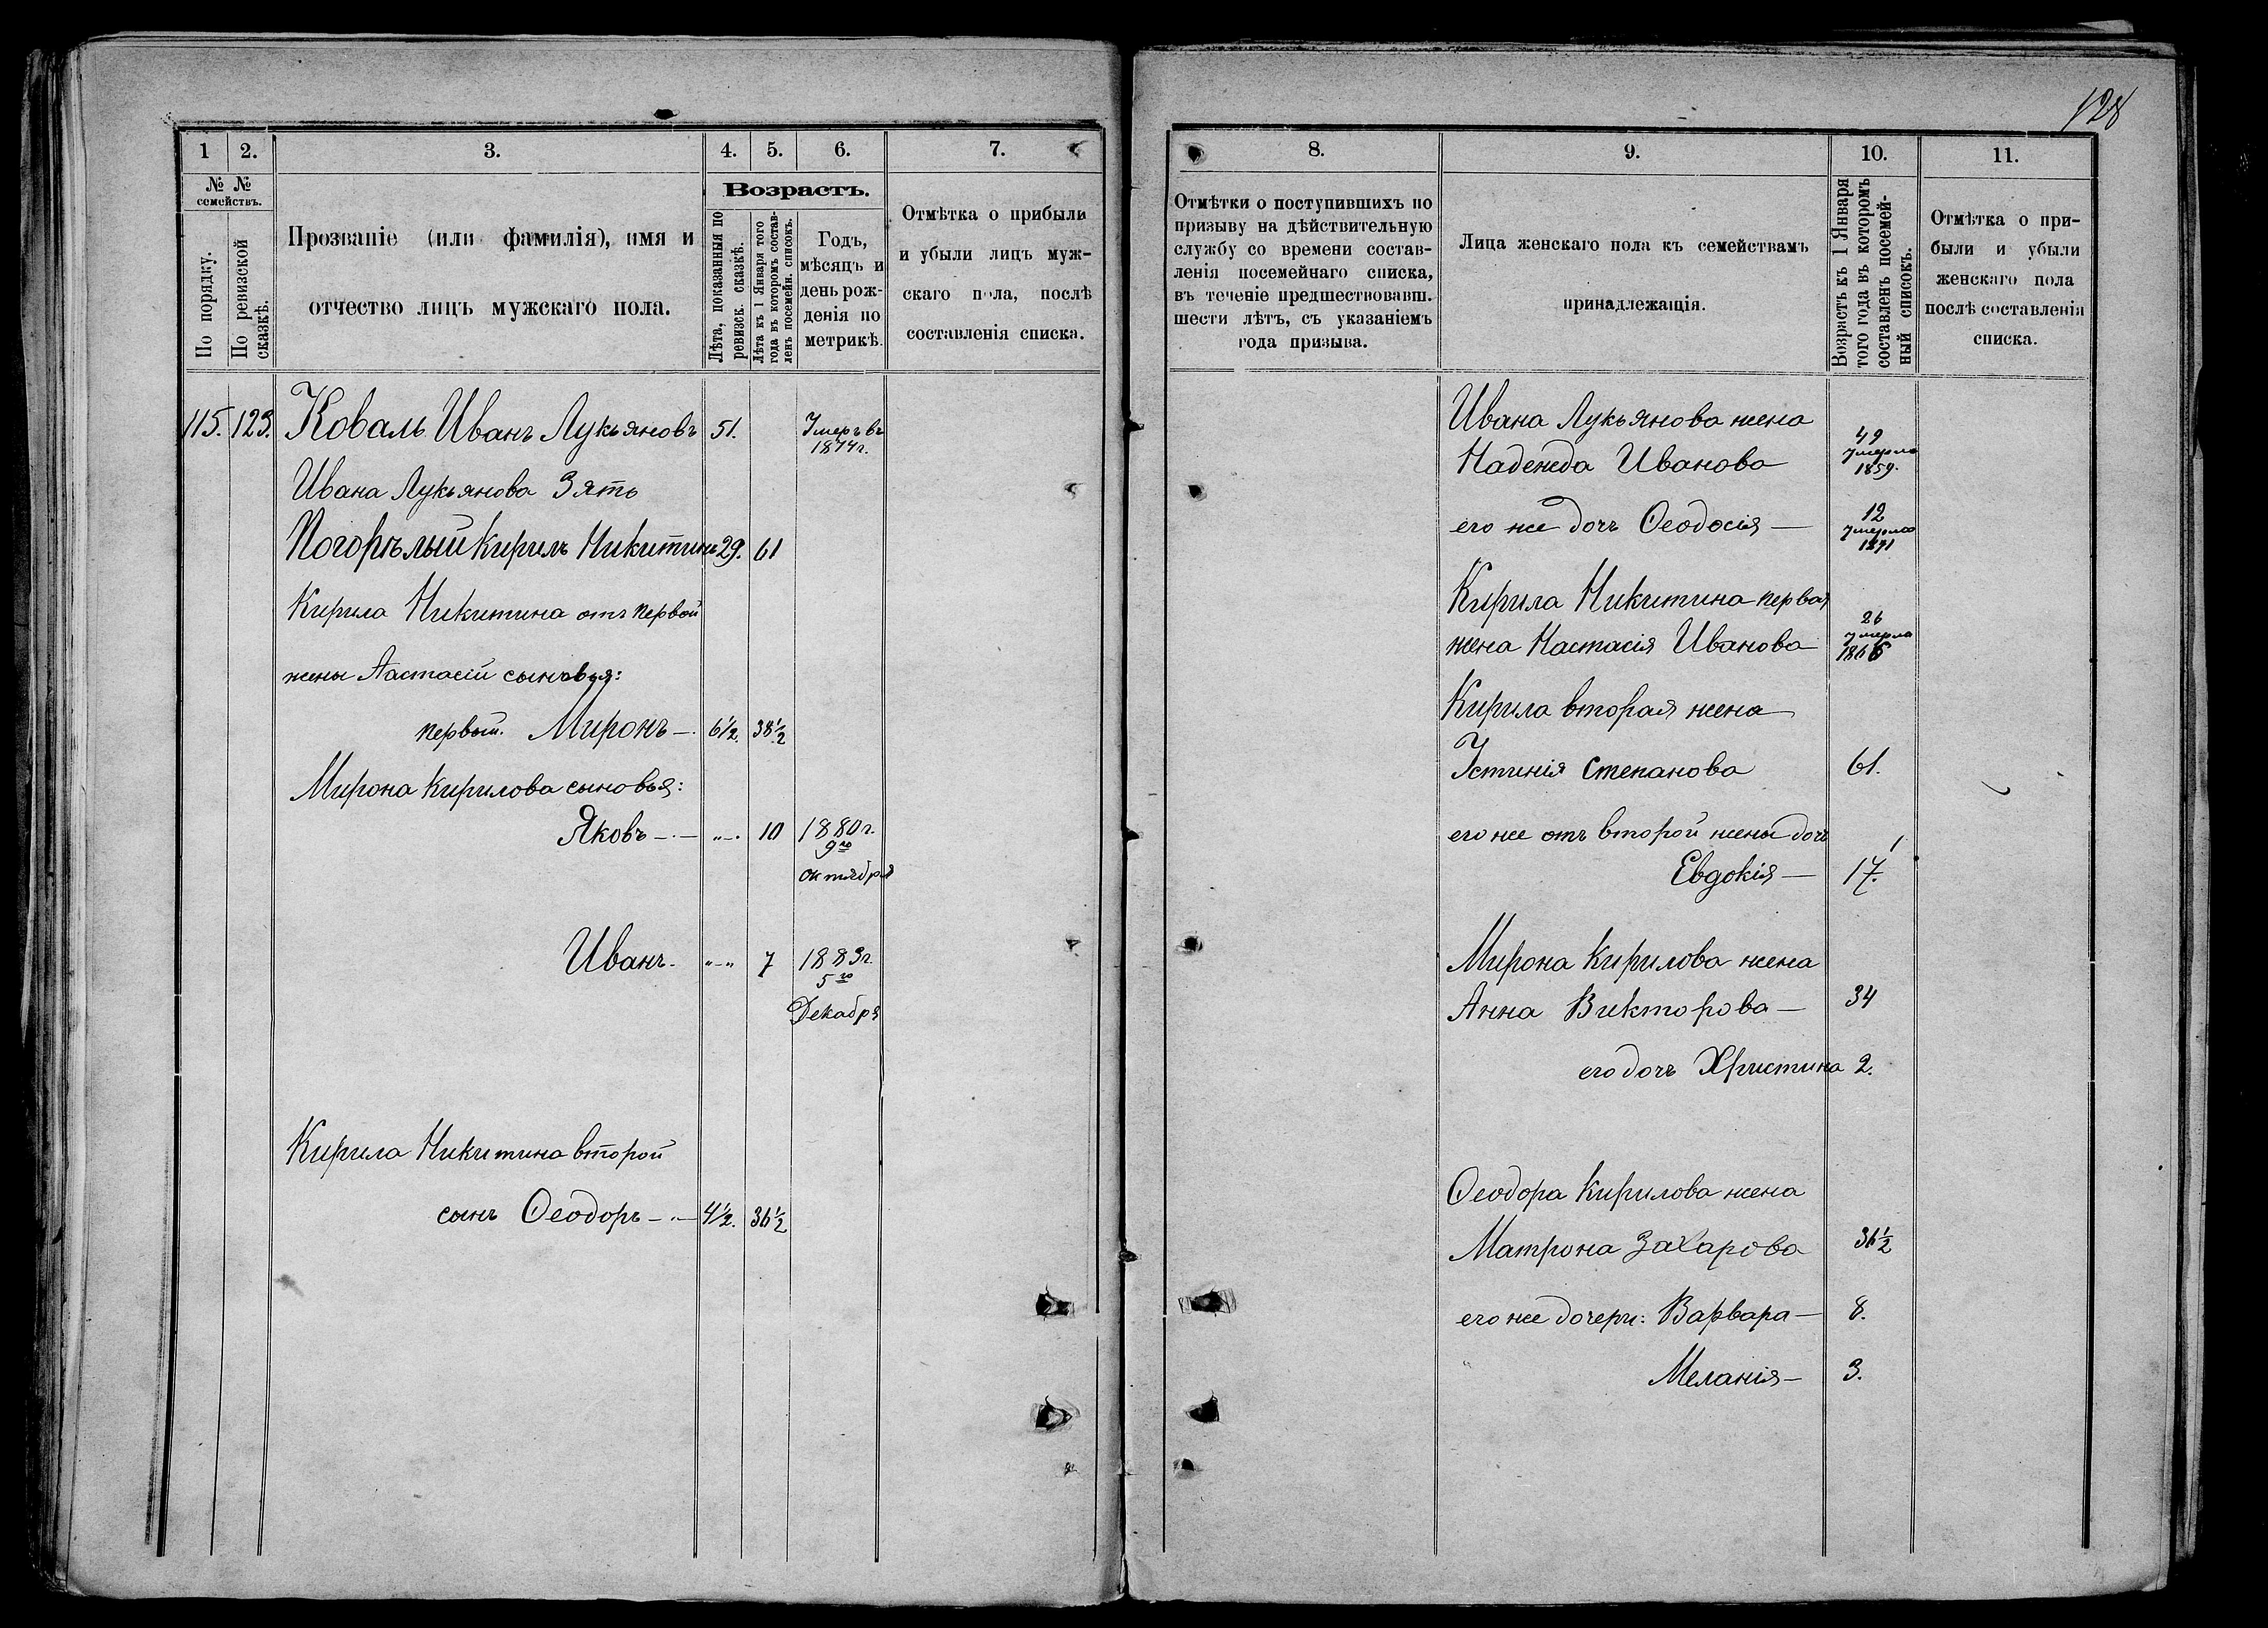 128
1
2.
3.
4.
5.
6.
7.
№ №
семействъ.
По порядку.
По ревизской
сказкѣ.
Прозваніе (или фамилія), имя и
отчество лицъ мужскаго пола.
Возрастъ.
Лѣта, показанныя по
ревизск. сказкѣ.
Лѣта къ 1 Января того
года въ которомъ состав-
ленъ посемейн. списокъ.
Годъ,
мѣсяцъ и
день рож-
денія по
метрикѣ.
Отмѣтка о прибыли
и убыли лицъ муж-
скаго пола, послѣ
составленія списка.
115. 123. Коваль Иванъ Лукьяновъ 51. Умеръ въ
1874г.
Ивана Лукьянова Зять
Погорѣлый Кирилъ Никитинъ 29. 61
Кирила Никитина отъ первой
жены Настасіи сыновья:
первый. Миронъ —. 6½. 38½
Мирона Кирилова сыновья:
Яковъ —.— „—. 10 1880г.
9го
октября
Иванъ. „—„ 7 1883г.
5го
Декабря
Кирила Никитина второй
сынъ Ѳеодоръ —„— 4½. 36½
8.
9.
10.
11.
Отмѣтки о поступившихъ по
призыву на дѣйствительную
службу со времени состав-
ленія посемейнаго списка,
въ теченіе предшествовавш.
шести лѣтъ, съ указаніемъ
года призыва.
Лица женскаго пола къ семействамъ
принадлежащія.
Возрастъ къ 1 Января
того года въ которомъ
составленъ посемей-
ный списокъ.
Отмѣтка о при-
были и убыли
женскаго пола
послѣ составленія
списка.
Ивана Лукьянова жена
Надежда Иванова 49
умерла
1859.
его же дочь Ѳеодосія — 12
умерла
1871
Кирила Никитина первая
жена Настасія Иванова 26
умерла
1866
Кирила вторая жена
Устинія Степанова 61.
его же отъ второй жены дочь
Евдокія — 17.
Мирона Кирилова жена
Анна Викторова — 34
его дочь Христина 2.
Ѳеодора Кирилова жена
Матрона Захарова 36½
его же дочери: Варвара — 8.
Меланія — 3.